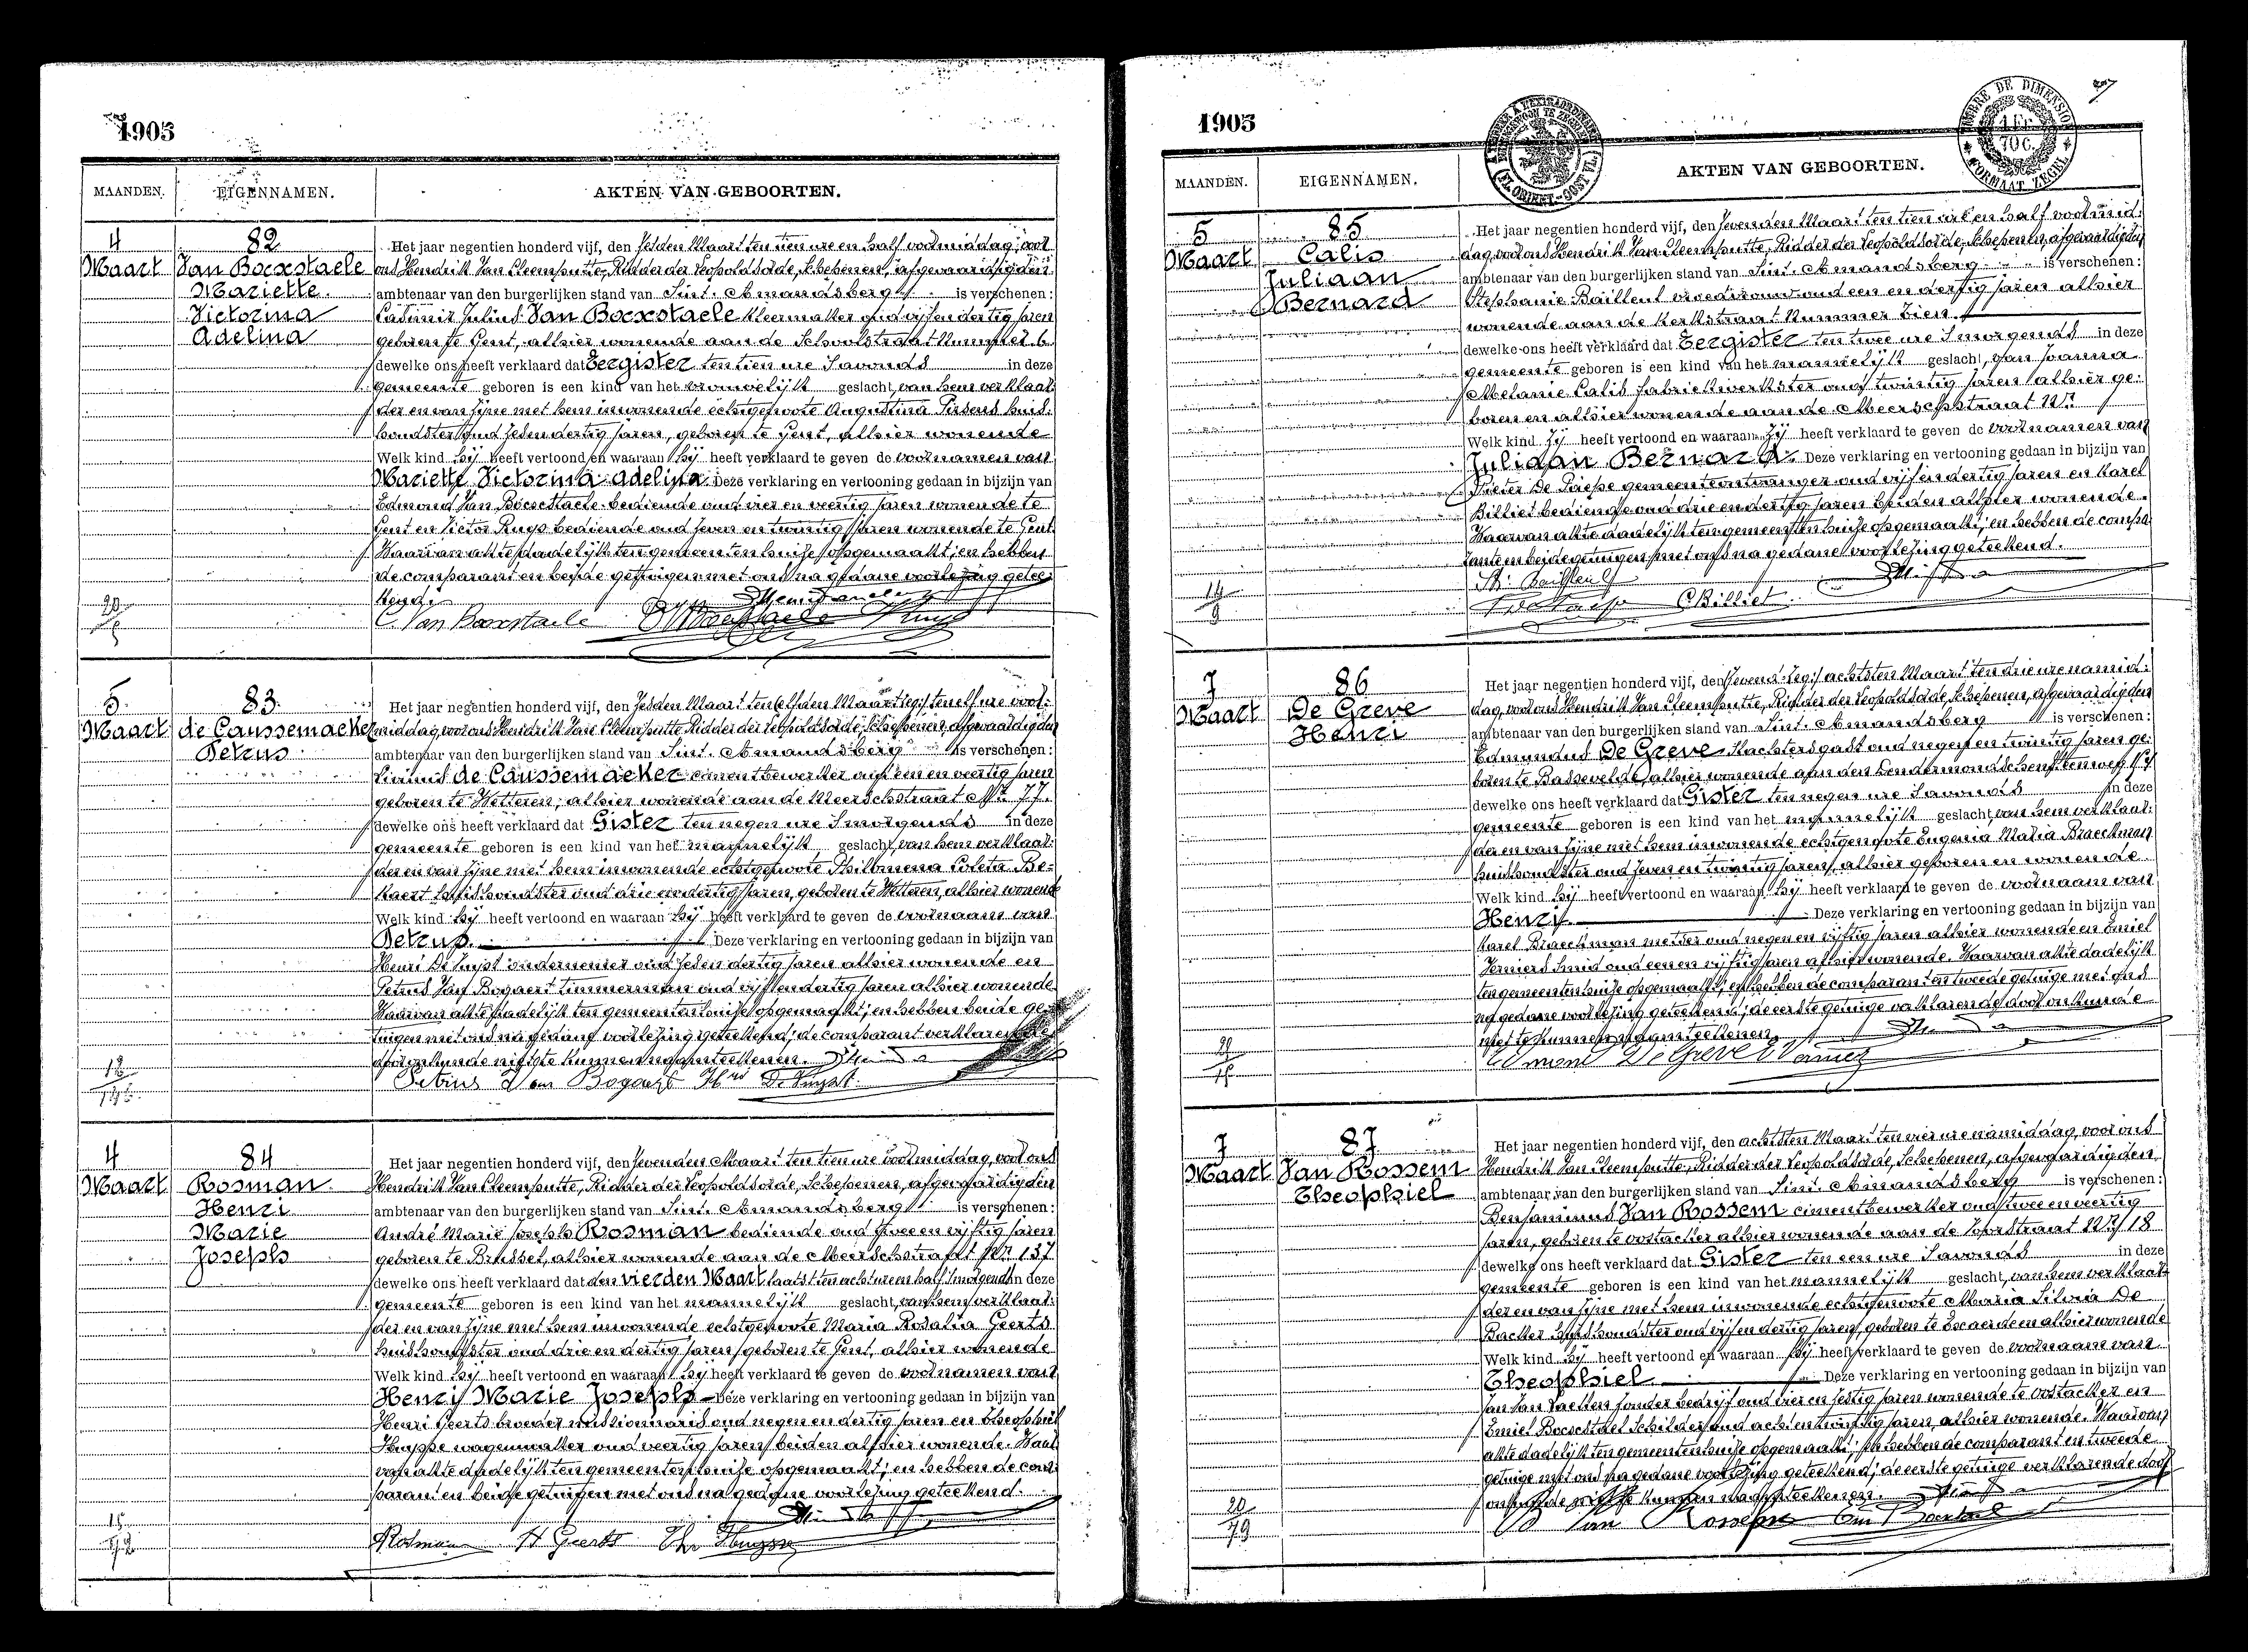 1905
MAANDEN.
EIGENNAMEN.
AKTEN VAN GEBOORTEN.
4
Maart
82
Van Boexstaele
Mariette
Victorina
Adelina
Het jaar negentien honderd vijf, den zesden Maart ten tien ure en half voormiddag, voor
ons Hendrik Van Cleemputte, Ridder der Leopoldsorde, Schepenen, afgevaardigden
ambtenaar van den burgerlijken stand van Sint. Amandsberg is verschenen:
Casimir Julius Van Boexstaele kleermaker oud vijf en dertig jaren
geboren te Gent, alhier wonende aan de Schoolstraat Nummer 6
dewelke ons heeft verklaard dat Eergister ten tien ure 's avonds in deze
gemeente geboren is een kind van het vrouwelijk geslacht, van hem verklaar-
der en van zijne met hem inwonende echtgenoote Augustina Pirsens huis-
houdster oud zes en dertig jaren, geboren te Gent, alhier wonende
Welk kind hij heeft vertoond en waaraan hij heeft verklaard te geven de voornamen van
Mariette Victorina Adelina Deze verklaring en vertooning gedaan in bijzijn van
Edmond Van Boexstaele bediende oud vier en veertig jaren wonende te
Gent en Victor Ruys bediende oud zeven en twintig jaren wonende te Gent.
Waarvan akte dadelijk ten gemeentenhuize opgemaakt; en hebben
de comparant en beide getuigen met ons na gedane voorlezing getee-
kend.
Van Boexstaele
5
Maart
83
de Caussemaeker
Petrus
Het jaar negentien honderd vijf, den zesden Maart ten elf ure voor-
middag, voor ons Hendrik Van Cleemputte Ridder der Leopoldsorde, Schepenen, afgevaardigden
ambtenaar van den burgerlijken stand van Sint. Amandsberg is verschenen:
de Caussemaeker cimentbewerker oud een en veertig jaren
geboren te Wetteren, alhier wonende aan de Meerschstraat Nr. 77.
dewelke ons heeft verklaard dat Gister ten negen ure 's morgends in deze
gemeente geboren is een kind van het mannelijk geslacht, van hem verklaar-
der en van zijne met hem inwonende echtgenoote Philomena Coleta Be-
kaert huishoudster oud drie en dertig jaren, geboren te Wetteren, alhier wonende
Welk kind hij heeft vertoond en waaraan hij heeft verklaard te geven de voornaam van
Petrus. Deze verklaring en vertooning gedaan in bijzijn van
Henri De Kuyst ondernemer oud zes en dertig jaren alhier wonende en
Petrus Van Bogaert timmerman oud vijf en dertig jaren alhier wonende
Waarvan akte dadelijk ten gemeentenhuize opgemaakt; en hebben beide ge-
tuigen met ons na gedane voorlezing geteekend; de comparant verklarende
door onkunde niet te kunnen naamteekenen.
Petrus Van Bogaert
4
Maart
84
Rosman
Henri
Marie
Joseph
Het jaar negentien honderd vijf, den zevenden Maart ten tien ure voormiddag, voor ons
Hendrik Van Cleemputte, Ridder der Leopoldsorde, Schepenen, afgevaardigden
ambtenaar van den burgerlijken stand van Sint. Amandsberg is verschenen:
André Marie Joseph Rosman bediende oud twee en vijftig jaren
geboren te Brussel, alhier wonende aan de Meerschstraat Nr. 137
dewelke ons heeft verklaard dat den vierden Maart laatst ten acht ure en half 's morgends in deze
gemeente geboren is een kind van het mannelijk geslacht, van hem verklaar-
der en van zijne met hem inwonende echtgenoote Maria Rosalia Geerts
huishoudster oud drie en dertig jaren, geboren te Gent, alhier wonende
Welk kind hij heeft vertoond en waaraan hij heeft verklaard te geven de voornamen van
Henri Marie Joseph Deze verklaring en vertooning gedaan in bijzijn van
Henri Geerts broeder missionnaris oud negen en dertig jaren en Theophiel
Huysse wagenmaker oud veertig jaren beiden alhier wonende. Waar-
van akte dadelijk ten gemeentenhuize opgemaakt; en hebben de com-
parant en beide getuigen met ons na gedane voorlezing geteekend.
Rosman H Geerts Th. Huysse
1905
MAANDEN.
EIGENNAMEN.
AKTEN VAN GEBOORTEN.
TIMBRE DE DIMENSION
1 Fr.
70 c.
FORMAAT ZEGEL
5
Maart
85
Calis
Juliaan
Bernard
Het jaar negentien honderd vijf, den zevenden Maart ten tien ure en half voormid-
dag, voor ons Hendrik Van Cleemputte, Ridder der Leopoldsorde, Schepenen, afgevaardigden
ambtenaar van den burgerlijken stand van Sint. Amandsberg is verschenen:
Stephanie Bailleul vroedvrouw oud een en dertig jaren alhier
wonende aan de Kerkstraat Nummer Tien.
dewelke ons heeft verklaard dat Eergister ten twee ure 's morgends in deze
gemeente geboren is een kind van het mannelijk geslacht, van Joanna
Melanie Calis fabriekwerkster oud twintig jaren alhier ge-
boren en alhier wonende aan de Meerschstraat
Welk kind zij heeft vertoond en waaraan zij heeft verklaard te geven de voornamen van
Juliaan Bernard. Deze verklaring en vertooning gedaan in bijzijn van
Pieter De Paepe gemeenteontvanger oud vijf en dertig jaren en Karel
Billiet bediende oud drie en dertig jaren beiden alhier wonende.
Waarvan akte dadelijk ten gemeentenhuize opgemaakt; en hebben de compa-
rante en beide getuigen met ons na gedane voorlezing geteekend.
St. Bailleul
CBilliet
7
Maart
86
De Greve
Henri
Het jaar negentien honderd vijf, den zevend. zegs achtsten Maart ten drie ure namid-
dag, voor ons Hendrik Van Cleemputte, Ridder der Leopoldsorde, Schepenen, afgevaardigden
ambtenaar van den burgerlijken stand van Sint. Amandsberg is verschenen:
Edmundus De Greve kachtersgast oud negen en twintig jaren ge-
boren te Bassevelde, alhier wonende aan den Dendermondschensteenweg
dewelke ons heeft verklaard dat Gister ten negen ure 's avonds in deze
gemeente geboren is een kind van het mannelijk geslacht, van hem verklaar-
der en van zijne met hem inwonende echtgenoote Eugenia Maria Braeckman
huishoudster oud zeven en twintig jaren, alhier geboren en wonende
Welk kind hij heeft vertoond en waaraan hij heeft verklaard te geven de voornaam van
Henri Deze verklaring en vertooning gedaan in bijzijn van
Karel Braeckman metser oud negen en vijftig jaren alhier wonende en Emiel
smid oud een en vijftig jaren alhier wonende. Waarvan akte dadelijk
ten gemeentenhuize opgemaakt; en hebben de comparant en tweede getuige met ons
na gedane voorlezing geteekend; de eerste getuige verklarende door onkunde
niet te kunnen naamteekenen.
Edmond De Greve
7
Maart
87
Van Rossem
Theophiel
Het jaar negentien honderd vijf, den achtsten Maart ten vier ure namiddag, voor ons
Hendrik Van Cleemputte, Ridder der Leopoldsorde, Schepenen, afgevaardigden
ambtenaar van den burgerlijken stand van Sint. Amandsberg is verschenen:
Benjaminus Van Rossem cimentbewerker oud twee en veertig
jaren, geboren te Oostacker alhier wonende aan de 18
dewelke ons heeft verklaard dat Gister ten een ure 's avonds in deze
gemeente geboren is een kind van het mannelijk geslacht, van hem verklaar-
der en van zijne met hem inwonende echtgenoote Maria Silvia De
Backer huishoudster oud vijf en dertig jaren, geboren te Exaerde en alhier wonende
Welk kind hij heeft vertoond en waaraan hij heeft verklaard te geven de voornaam van
Theophiel Deze verklaring en vertooning gedaan in bijzijn van
Jan Van Laeken zonder bedrijf oud vier en zestig jaren wonende te Oostacker en
Emiel Bocxstael schilder oud acht en twintig jaren, alhier wonende. Waarvan
akte dadelijk ten gemeentenhuize opgemaakt; en hebben de comparant en tweede
getuige met ons na gedane voorlezing geteekend; de eerste getuige verklarende door
onkunde niet te kunnen naamteekenen.
B Van Rossem